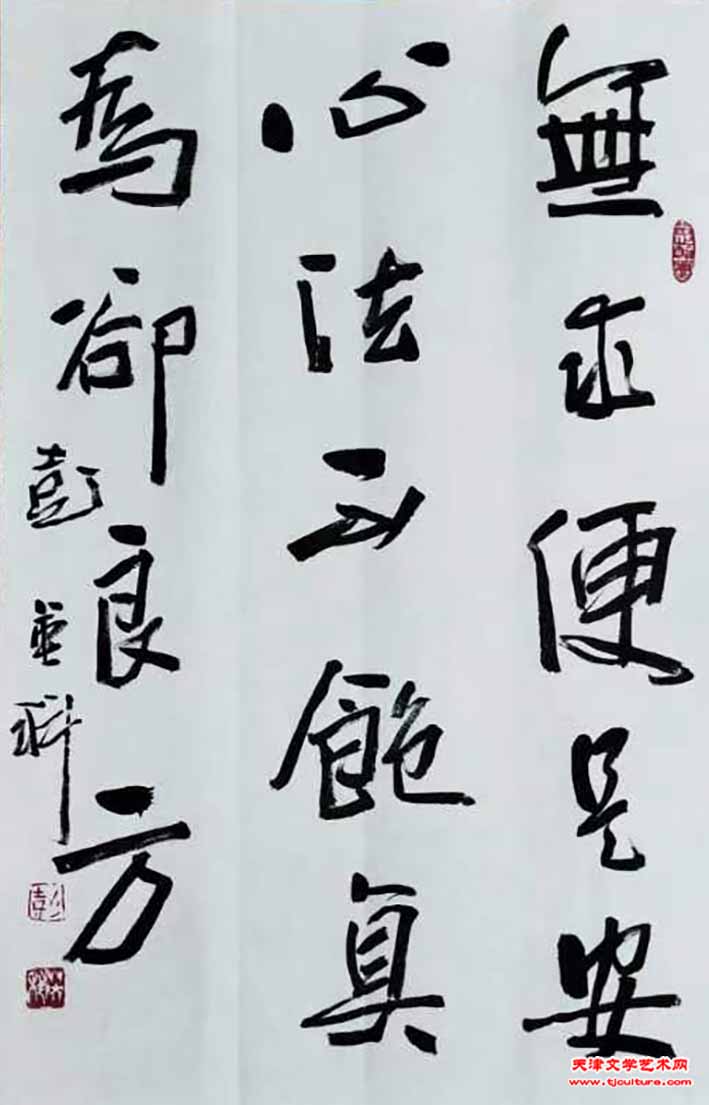 無求便是安
心法不飽真
為卻良方
彭英科
天津文学艺术网
www.tjculture.com